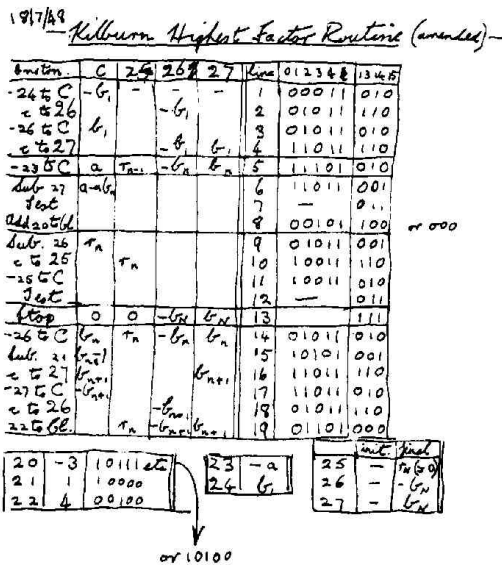 18/7/48
Kilburn Highest Factor Routine (amended)
Instn. C 25 26 27 line 0 1 2 3 4 13 14 15
-24 to C -b₁ - - - 1 00011 010
c to 26 -b₁ 2 01011 110
-26 to C b₁ 3 01011 010
c to 27 -b₁ b₁ 4 11011 110
-23 to C a rₙ₋₁ -bₙ bₙ 5 11101 010
Sub 27 a-abₙ 6 11011 001
Test 7 — 011
Add 20 to Cl 8 00101 100 or 000
Sub. 26 rₙ 9 01011 001
c to 25 rₙ 10 10011 110
-25 to C 11 10011 010
Test 12 — 011
Stop 0 0 -b_N b_N 13 111
-26 to C bₙ rₙ -bₙ bₙ 14 01011 010
Sub. 21 bₙ₊₁ 15 10101 001
c to 27 bₙ₊₁ bₙ₊₁ 16 11011 110
-27 to C -bₙ₊₁ 17 11011 010
c to 26 -bₙ₊₁ 18 01011 110
22 to Cl. rₙ -bₙ₊₁ bₙ₊₁ 19 01101 000
init. final
20 -3 10111 etc 23 -a 25 — r_N (≥0)
21 1 10000 24 b₁ 26 — -b_N
22 4 00100 27 — b_N
or 10100